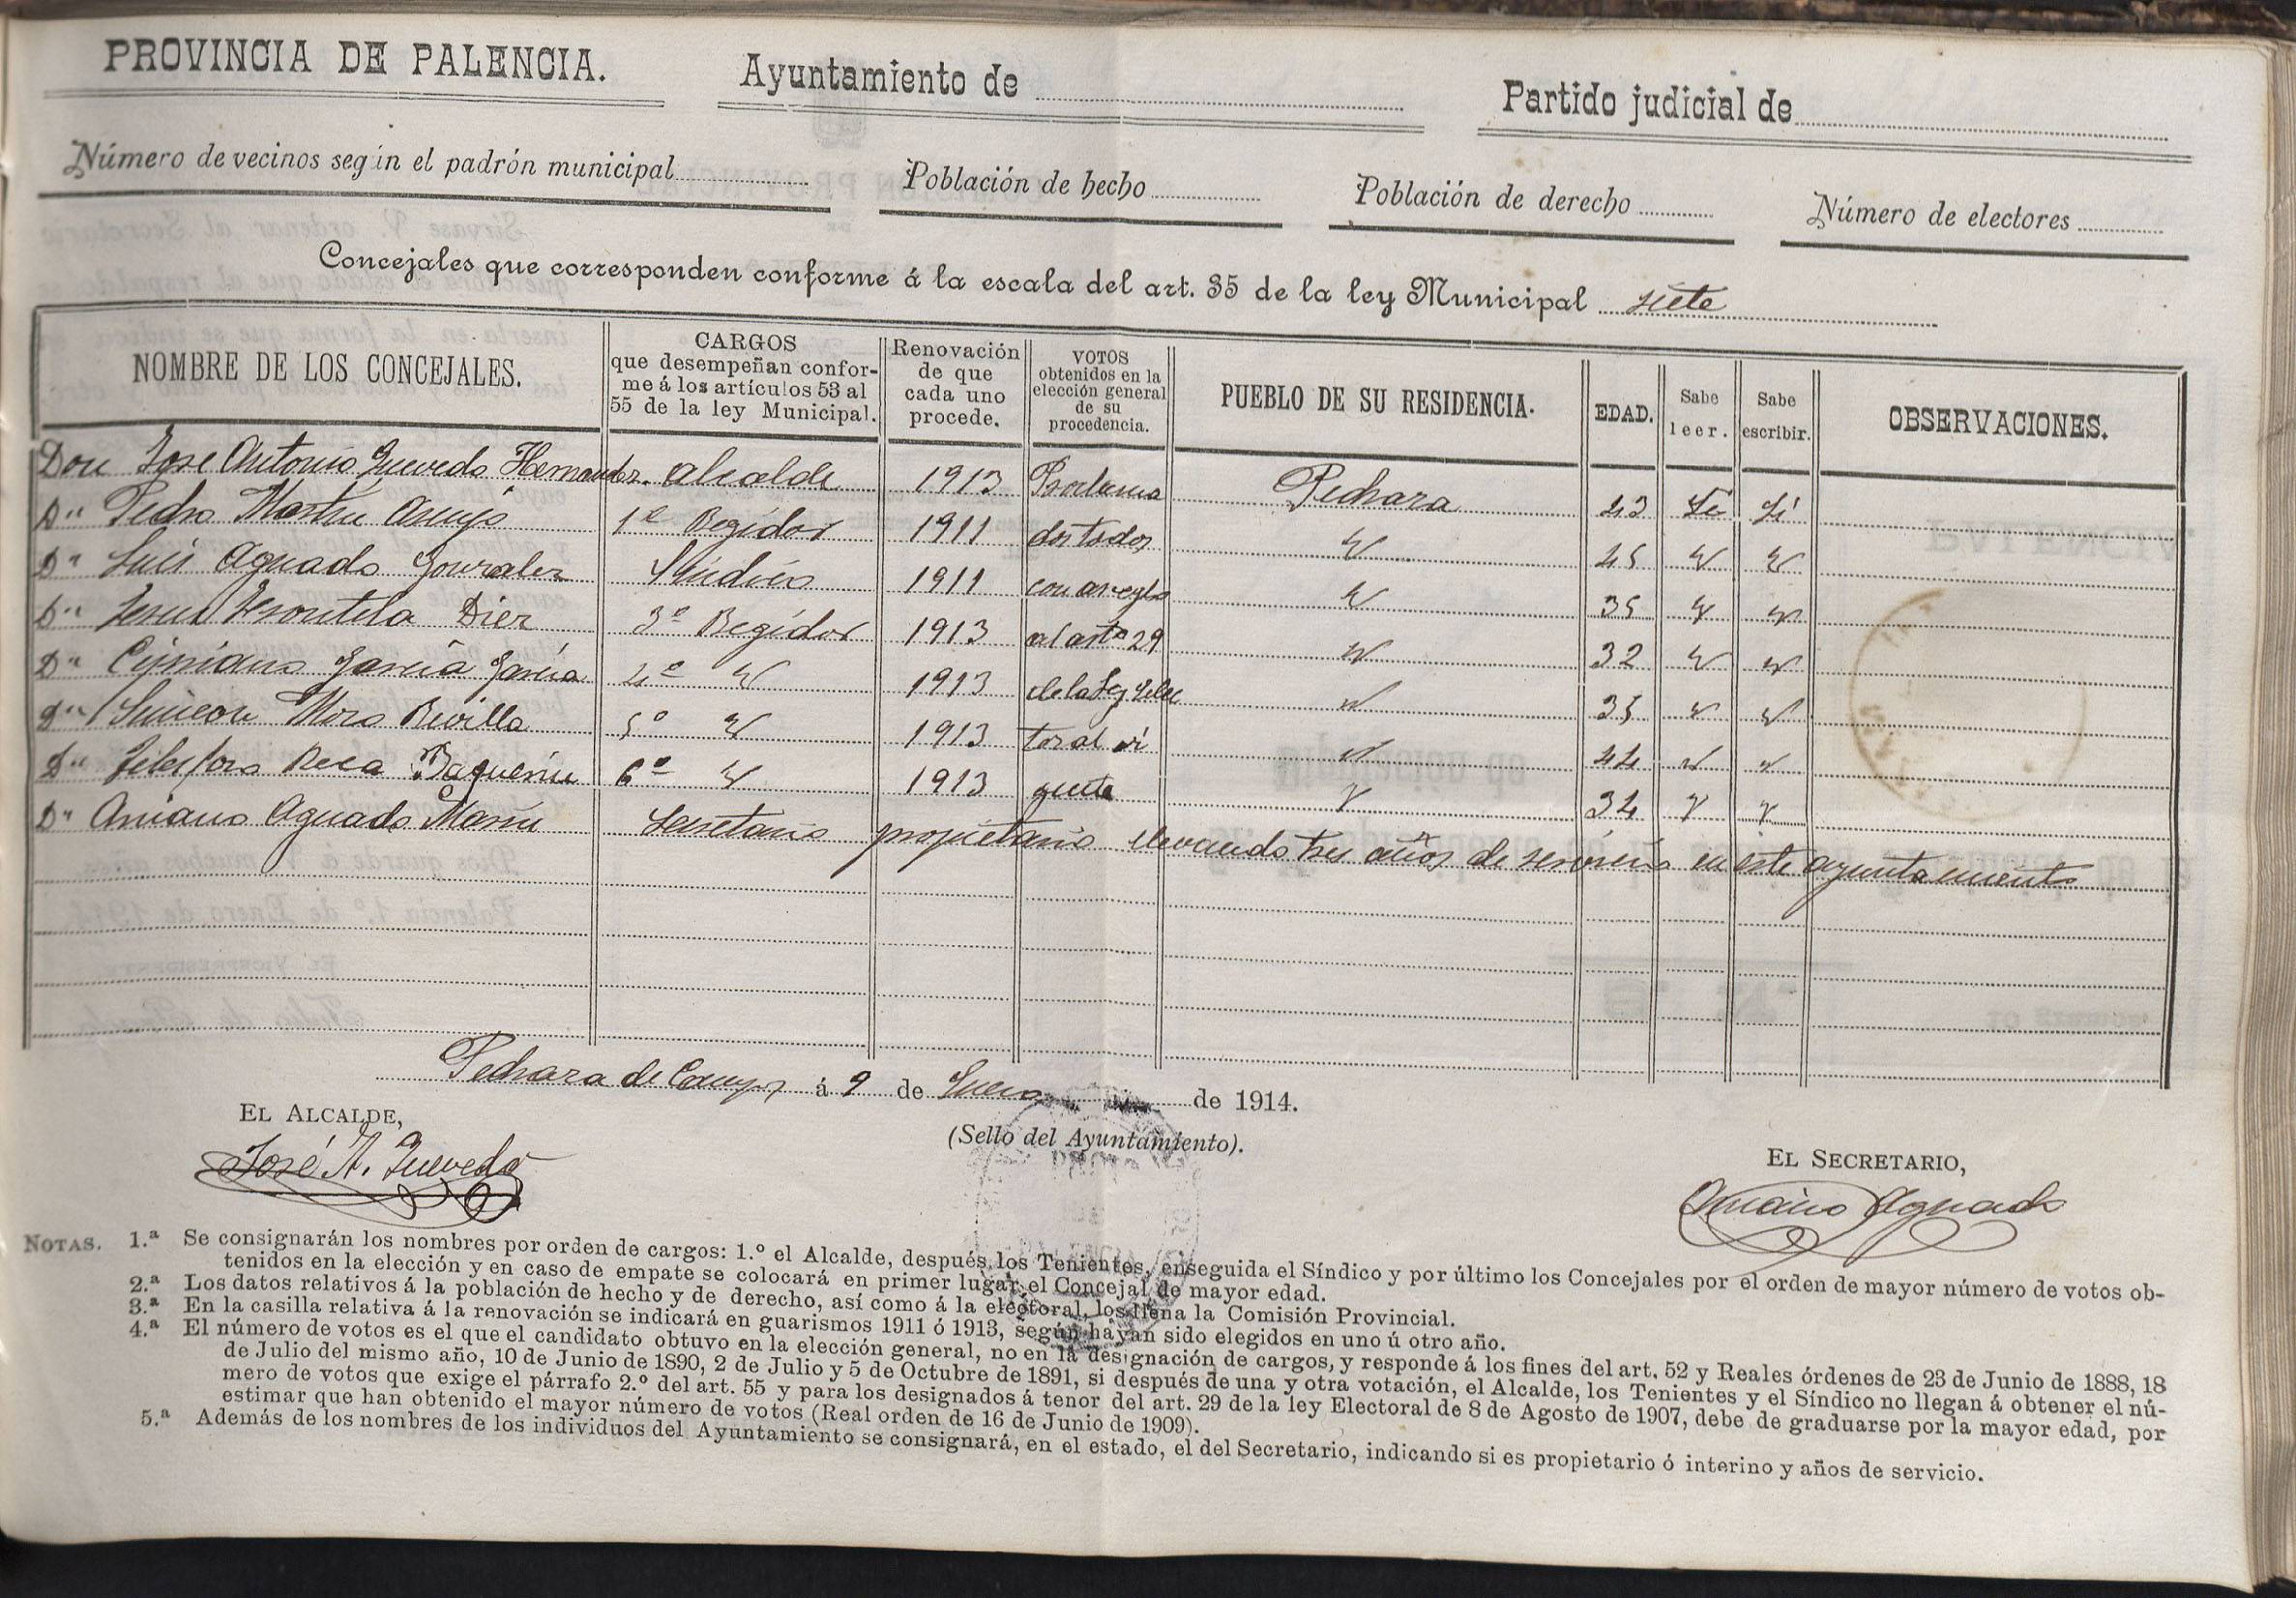 PROVINCIA DE PALENCIA. Ayuntamiento de Partido judicial de
Número de vecinos según el padrón municipal Población de hecho Población de derecho Número de electores
Concejales que corresponden conforme á la escala del art. 35 de la ley Municipal siete
NOMBRE DE LOS CONCEJALES. CARGOS que desempeñan conforme á los artículos 53 al 55 de la ley Municipal. Renovación de que cada uno procede. VOTOS obtenidos en la elección general de su procedencia. PUEBLO DE SU RESIDENCIA. EDAD. Sabe leer. Sabe escribir. OBSERVACIONES.
Don Jose Antonio Quevedo Hernandez. Alcalde 1913 Proclama Pedraza 43 Si Si
Dn Pedro Martin Asenjo 1er Regidor 1911 dos todos 45
Dn Luis Aguado Gonzalez Sindico 1911 con arreglo 35
Dn Jesus Frontela Diez 3º Regidor 1913 al artº 29 32
Dn Cipriano García García 4º 1913 de la Ley Elec 35
Dn Simeon Moro Revilla 5º 1913 toral vi 44
Dn Telesforo Reca Baquerin 6º 1913 gente 34
Dn Aniano Aguado Marin Secretario propietario llevando tres años de servicio en este ayuntamiento
Pedraza de Campos á 9 de Enero de 1914.
EL ALCALDE,
(Sello del Ayuntamiento).
EL SECRETARIO,
José A. Quevedo
Aniano Aguado
NOTAS. 1.ª Se consignarán los nombres por orden de cargos: 1.º el Alcalde, después los Tenientes, enseguida el Síndico y por último los Concejales por el orden de mayor número de votos ob-
tenidos en la elección y en caso de empate se colocará en primer lugar el Concejal de mayor edad.
2.ª Los datos relativos á la población de hecho y de derecho, así como á la electoral, los llena la Comisión Provincial.
3.ª En la casilla relativa á la renovación se indicará en guarismos 1911 ó 1913, según hayan sido elegidos en uno ú otro año.
4.ª El número de votos es el que el candidato obtuvo en la elección general, no en la designación de cargos, y responde á los fines del art. 52 y Reales órdenes de 23 de Junio de 1888, 18
de Julio del mismo año, 10 de Junio de 1890, 2 de Julio y 5 de Octubre de 1891, si después de una y otra votación, el Alcalde, los Tenientes y el Síndico no llegan á obtener el nú-
mero de votos que exige el párrafo 2.º del art. 55 y para los designados á tenor del art. 29 de la ley Electoral de 8 de Agosto de 1907, debe de graduarse por la mayor edad, por
estimar que han obtenido el mayor número de votos (Real orden de 16 de Junio de 1909).
5.ª Además de los nombres de los individuos del Ayuntamiento se consignará, en el estado, el del Secretario, indicando si es propietario ó interino y años de servicio.